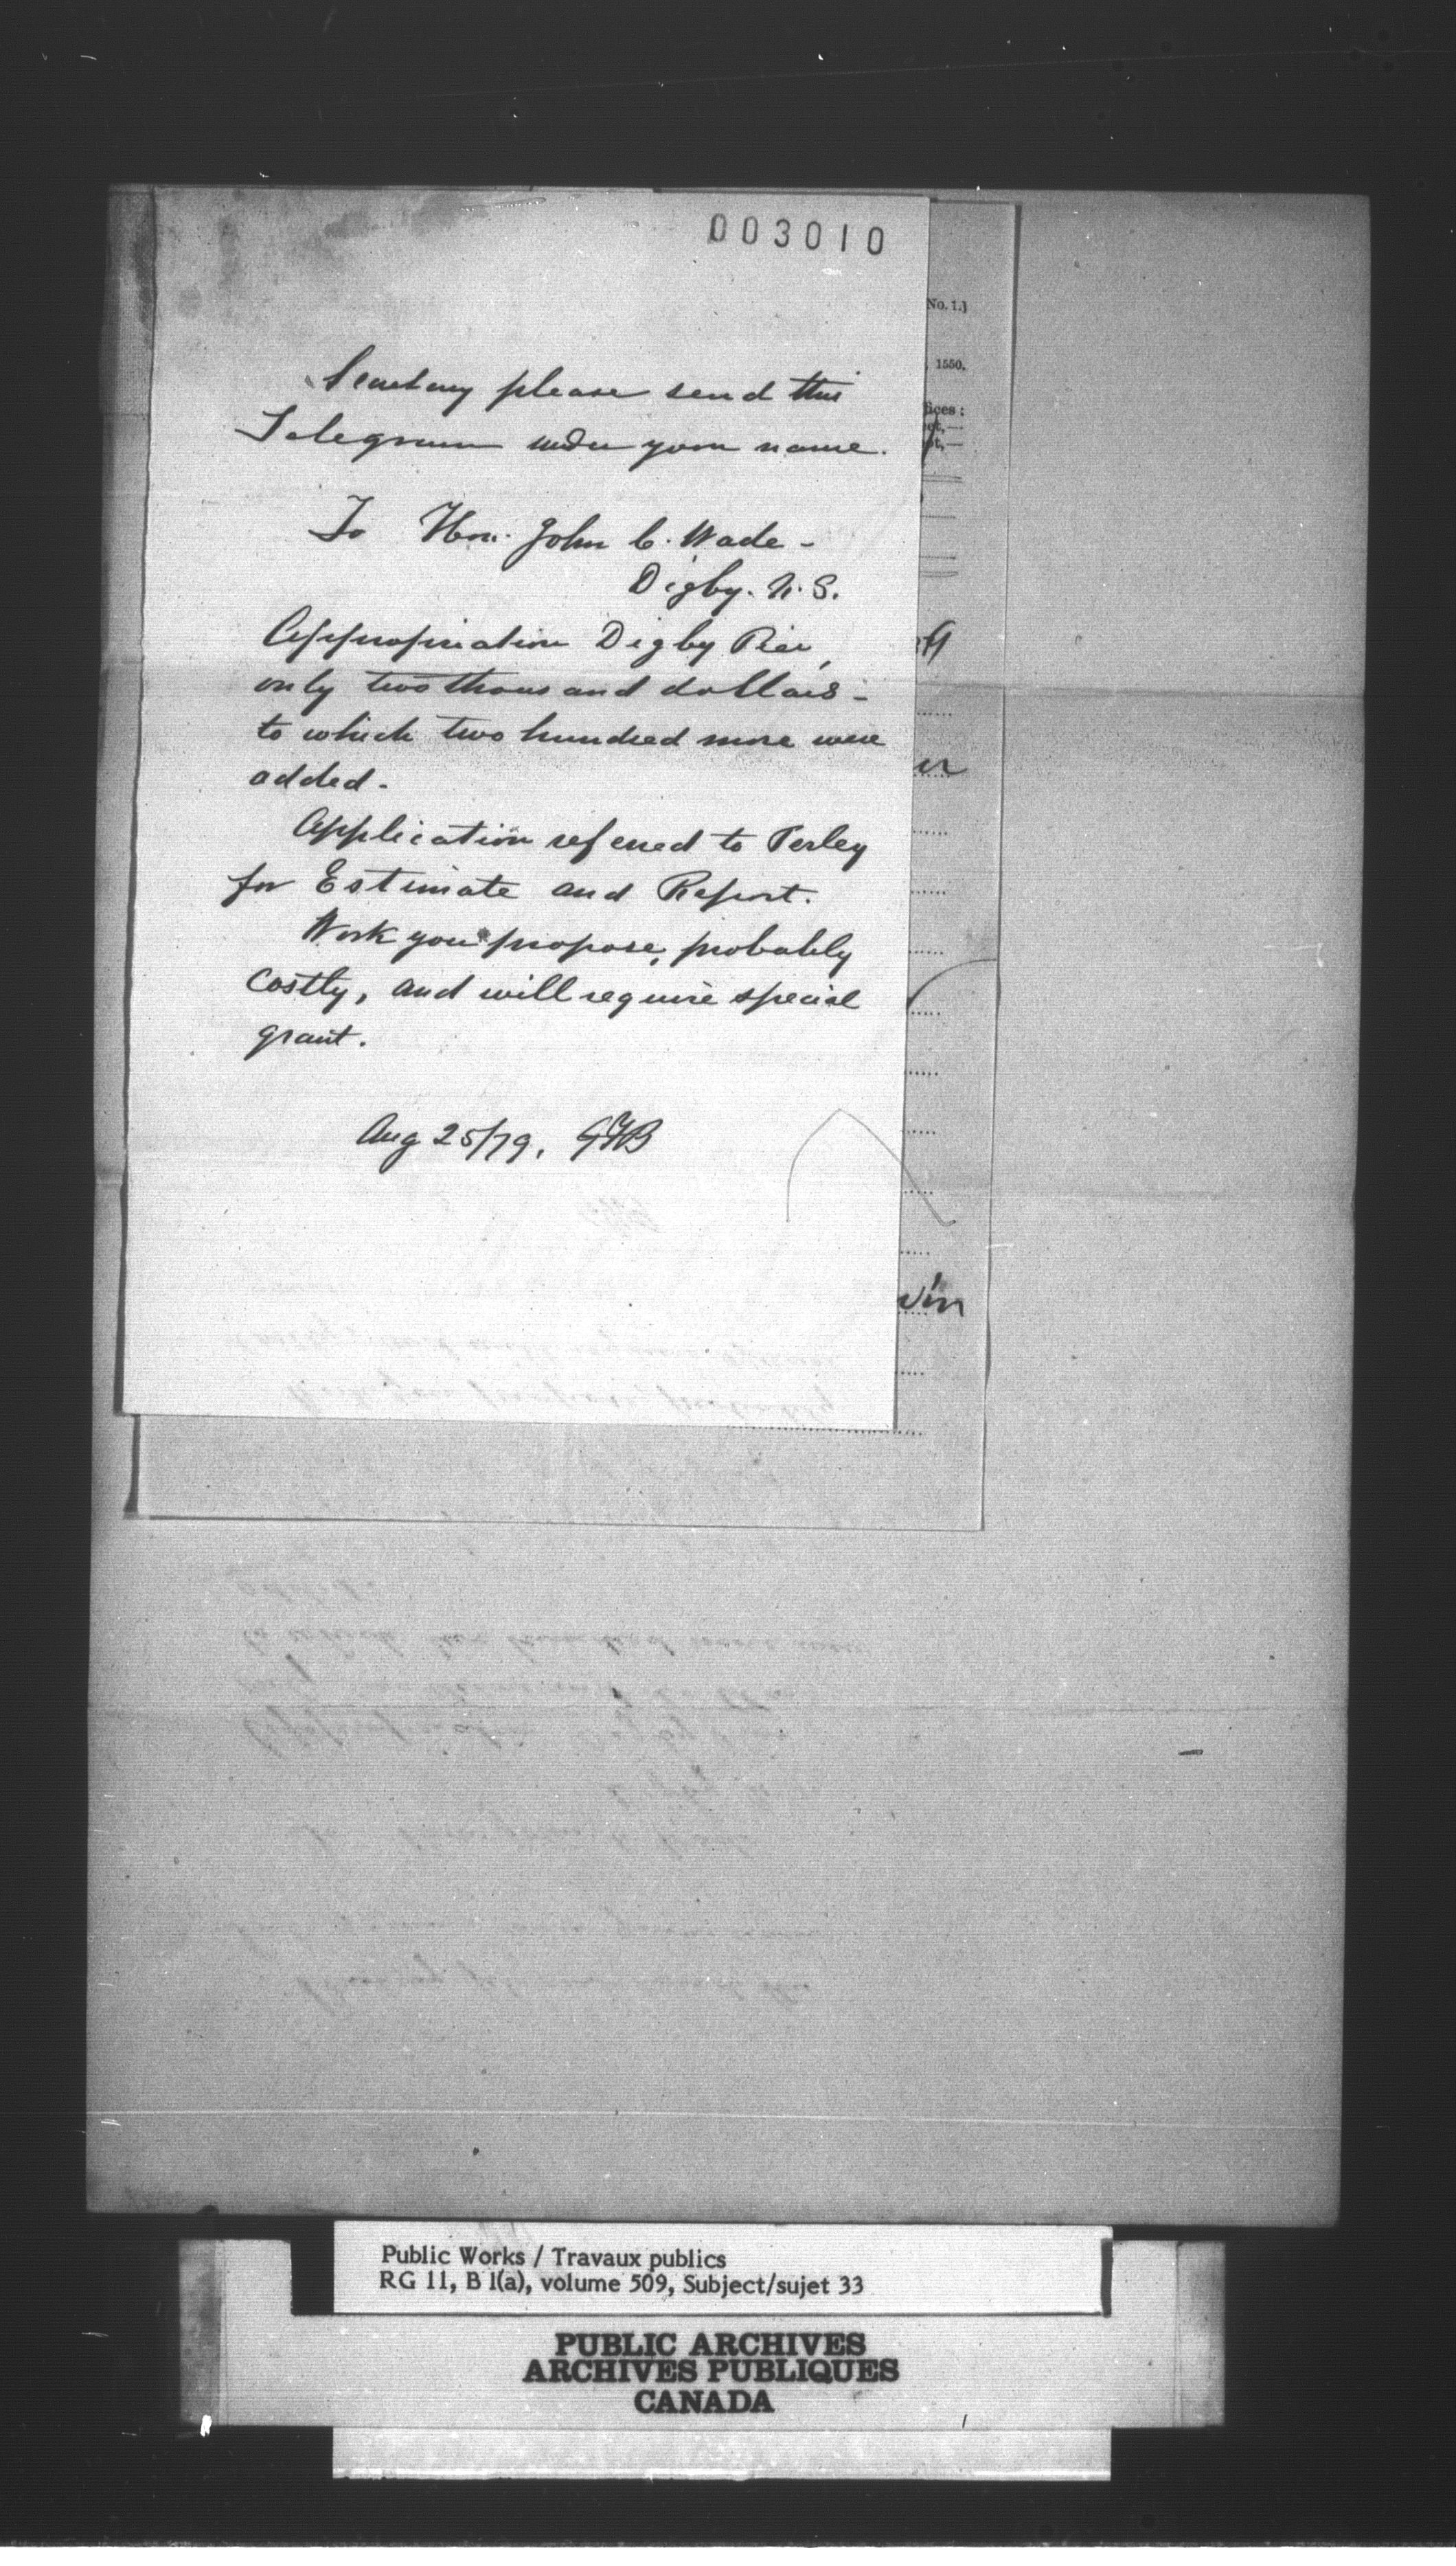 003010
Secretary please send this
Telegram under your name.
To Hon. John C. Wade -
Digby. N. S.
Appropriation Digby Pier,
only two thousand dollars -
to which two hundred more were
added.
Application referred to Perley
for Estimate and Report.
Work you propose, probably
costly, and will require special
grant.
Aug 25/79, GFB
No. 1.)
1550.
fices :
ct,—
pt,—
Public Works / Travaux publics
RG 11, B 1(a), volume 509, Subject/sujet 33
PUBLIC ARCHIVES
ARCHIVES PUBLIQUES
CANADA